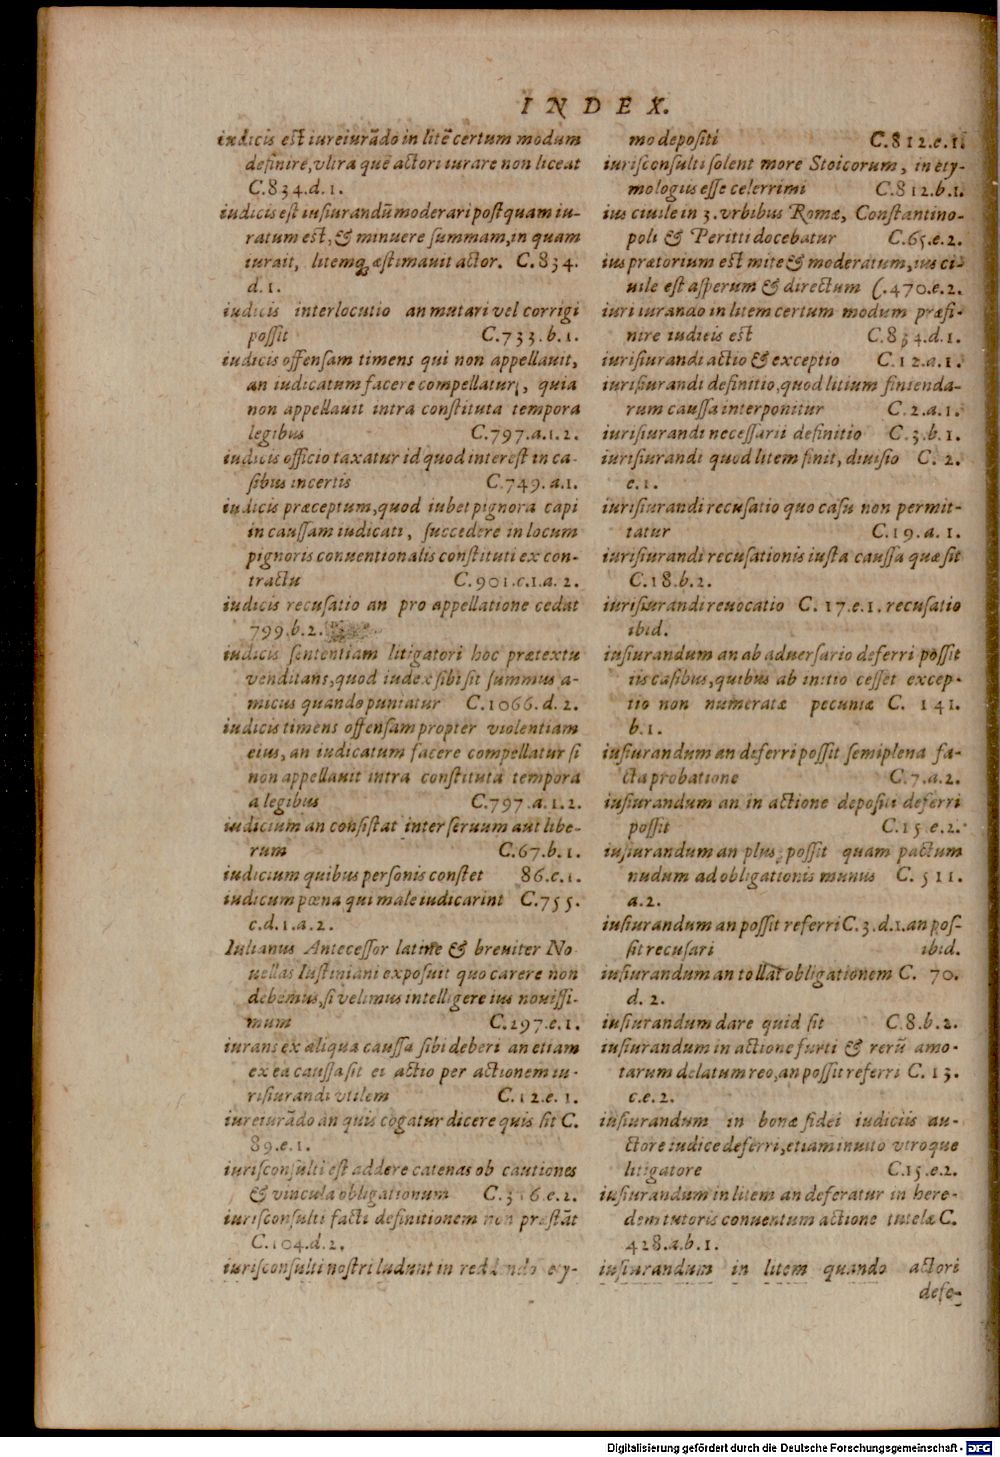 INDEX.
iudicis est iureiurādo in litē certum modum
definire, vltra quē actori iurare non liceat
C.834.d.1.
iudicis est iusiurandū moderari postquam iu-
ratum est, & minuere summam, in quam
iurait, litemq; æstimauit actor. C.834.
d.1.
iudicis interlocutio an mutari vel corrigi
possit C.733.b.1.
iudicis offensam timens qui non appellauit,
an iudicatum facere compellatur, quia
non appellauit intra constituta tempora
legibus C.797.a.1.2.
iudicis officio taxatur id quod interest in ca-
sibus incertis C.749.a.1.
iudicis præceptum, quod iubet pignora capi
in caussam iudicati, succedere in locum
pignoris conuentionalis constituti ex con-
tractu C.901.c.1.a.2.
iudicis recusatio an pro appellatione cedat
799.b.2.
iudicis sententiam litigatori hoc prætextu
venditans, quod iudex sibi sit summus a-
micus quando puniatur C.1066.d.2.
iudicis timens offensam propter violentiam
eius, an iudicatum facere compellatur si
non appellauit intra constituta tempora
a legibus C.797.a.1.2.
iudicium an consistat inter seruum aut libe-
rum C.67.b.1.
iudicium quibus personis constet 86.c.1.
iudicum pœna qui male iudicarint C.755.
c.d.1.a.2.
Iulianus Antecessor latine & breuiter No-
uellas Iustiniani exposuit quo carere non
debemus, si velimus intelligere ius nouissi-
mum C.297.e.1.
iurans ex aliqua caussa sibi deberi an etiam
ex ea caussa sit ei actio per actionem iu-
risiurandi vtilem C.12.e.1.
iureiurādo an quis cogatur dicere quis sit C.
89.e.1.
iurisconsulti est addere catenas ob cautiones
& vincula obligationum C.316.e.2.
iurisconsulti facti definitionem non præstāt
C.104.d.2.
iurisconsulti nostri ludunt in reddendo ety-
mo depositi C.812.e.1.
iurisconsulti solent more Stoicorum, in ety-
mologiis esse celerrimi C.812.b.1.
ius ciuile in 3. vrbibus Romæ, Constantino-
poli & Peritti docebatur C.65.e.2.
ius prætorium est mite & moderatum, ius ci-
uile est asperum & directum C.470.e.2.
iuri iurando in litem certum modum præfi-
nire iudicis est C.834.d.1.
iurisiurandi actio & exceptio C.12.a.1.
iurisiurandi definitio, quod litium finienda-
rum caussa interponitur C.2.a.1.
iurisiurandi necessarii definitio C.3.b.1.
iurisiurandi quod litem finit, diuisio C. 2.
e.1.
iurisiurandi recusatio quo casu non permit-
tatur C.19.a.1.
iurisiurandi recusationis iusta caussa quæ sit
C.18.b.2.
iurisiurandi reuocatio C. 17.e.1. recusatio
ibid.
iusiurandum an ab aduersario deferri possit
iis casibus, quibus ab initio cesset excep-
tio non numeratæ pecuniæ C. 141.
b.1.
iusiurandum an deferri possit semiplena fa-
cta probatione C.7.a.2.
iusiurandum an in actione depositi deferri
possit C.15.e.2.
iusiurandum an plus possit quam pactum
nudum ad obligationis munus C. 511.
a.2.
iusiurandum an possit referri C.3.d.1. an pos-
sit recusari ibid.
iusiurandum an tollat obligationem C. 70.
d.2.
iusiurandum dare quid sit C.8.b.2.
iusiurandum in actione furti & rerū amo-
tarum delatum reo, an possit referri C. 13.
c.e.2.
iusiurandum in bonæ fidei iudiciis au-
ctore iudice deferri, etiam inuito vtroque
litigatore C.15.e.2.
iusiurandum in litem an deferatur in here-
dem tutoris conuentum actione tutelæ C.
428.a.b.1.
iusiurandum in litem quando actori
defe-
Digitalisierung gefördert durch die Deutsche Forschungsgemeinschaft - DFG